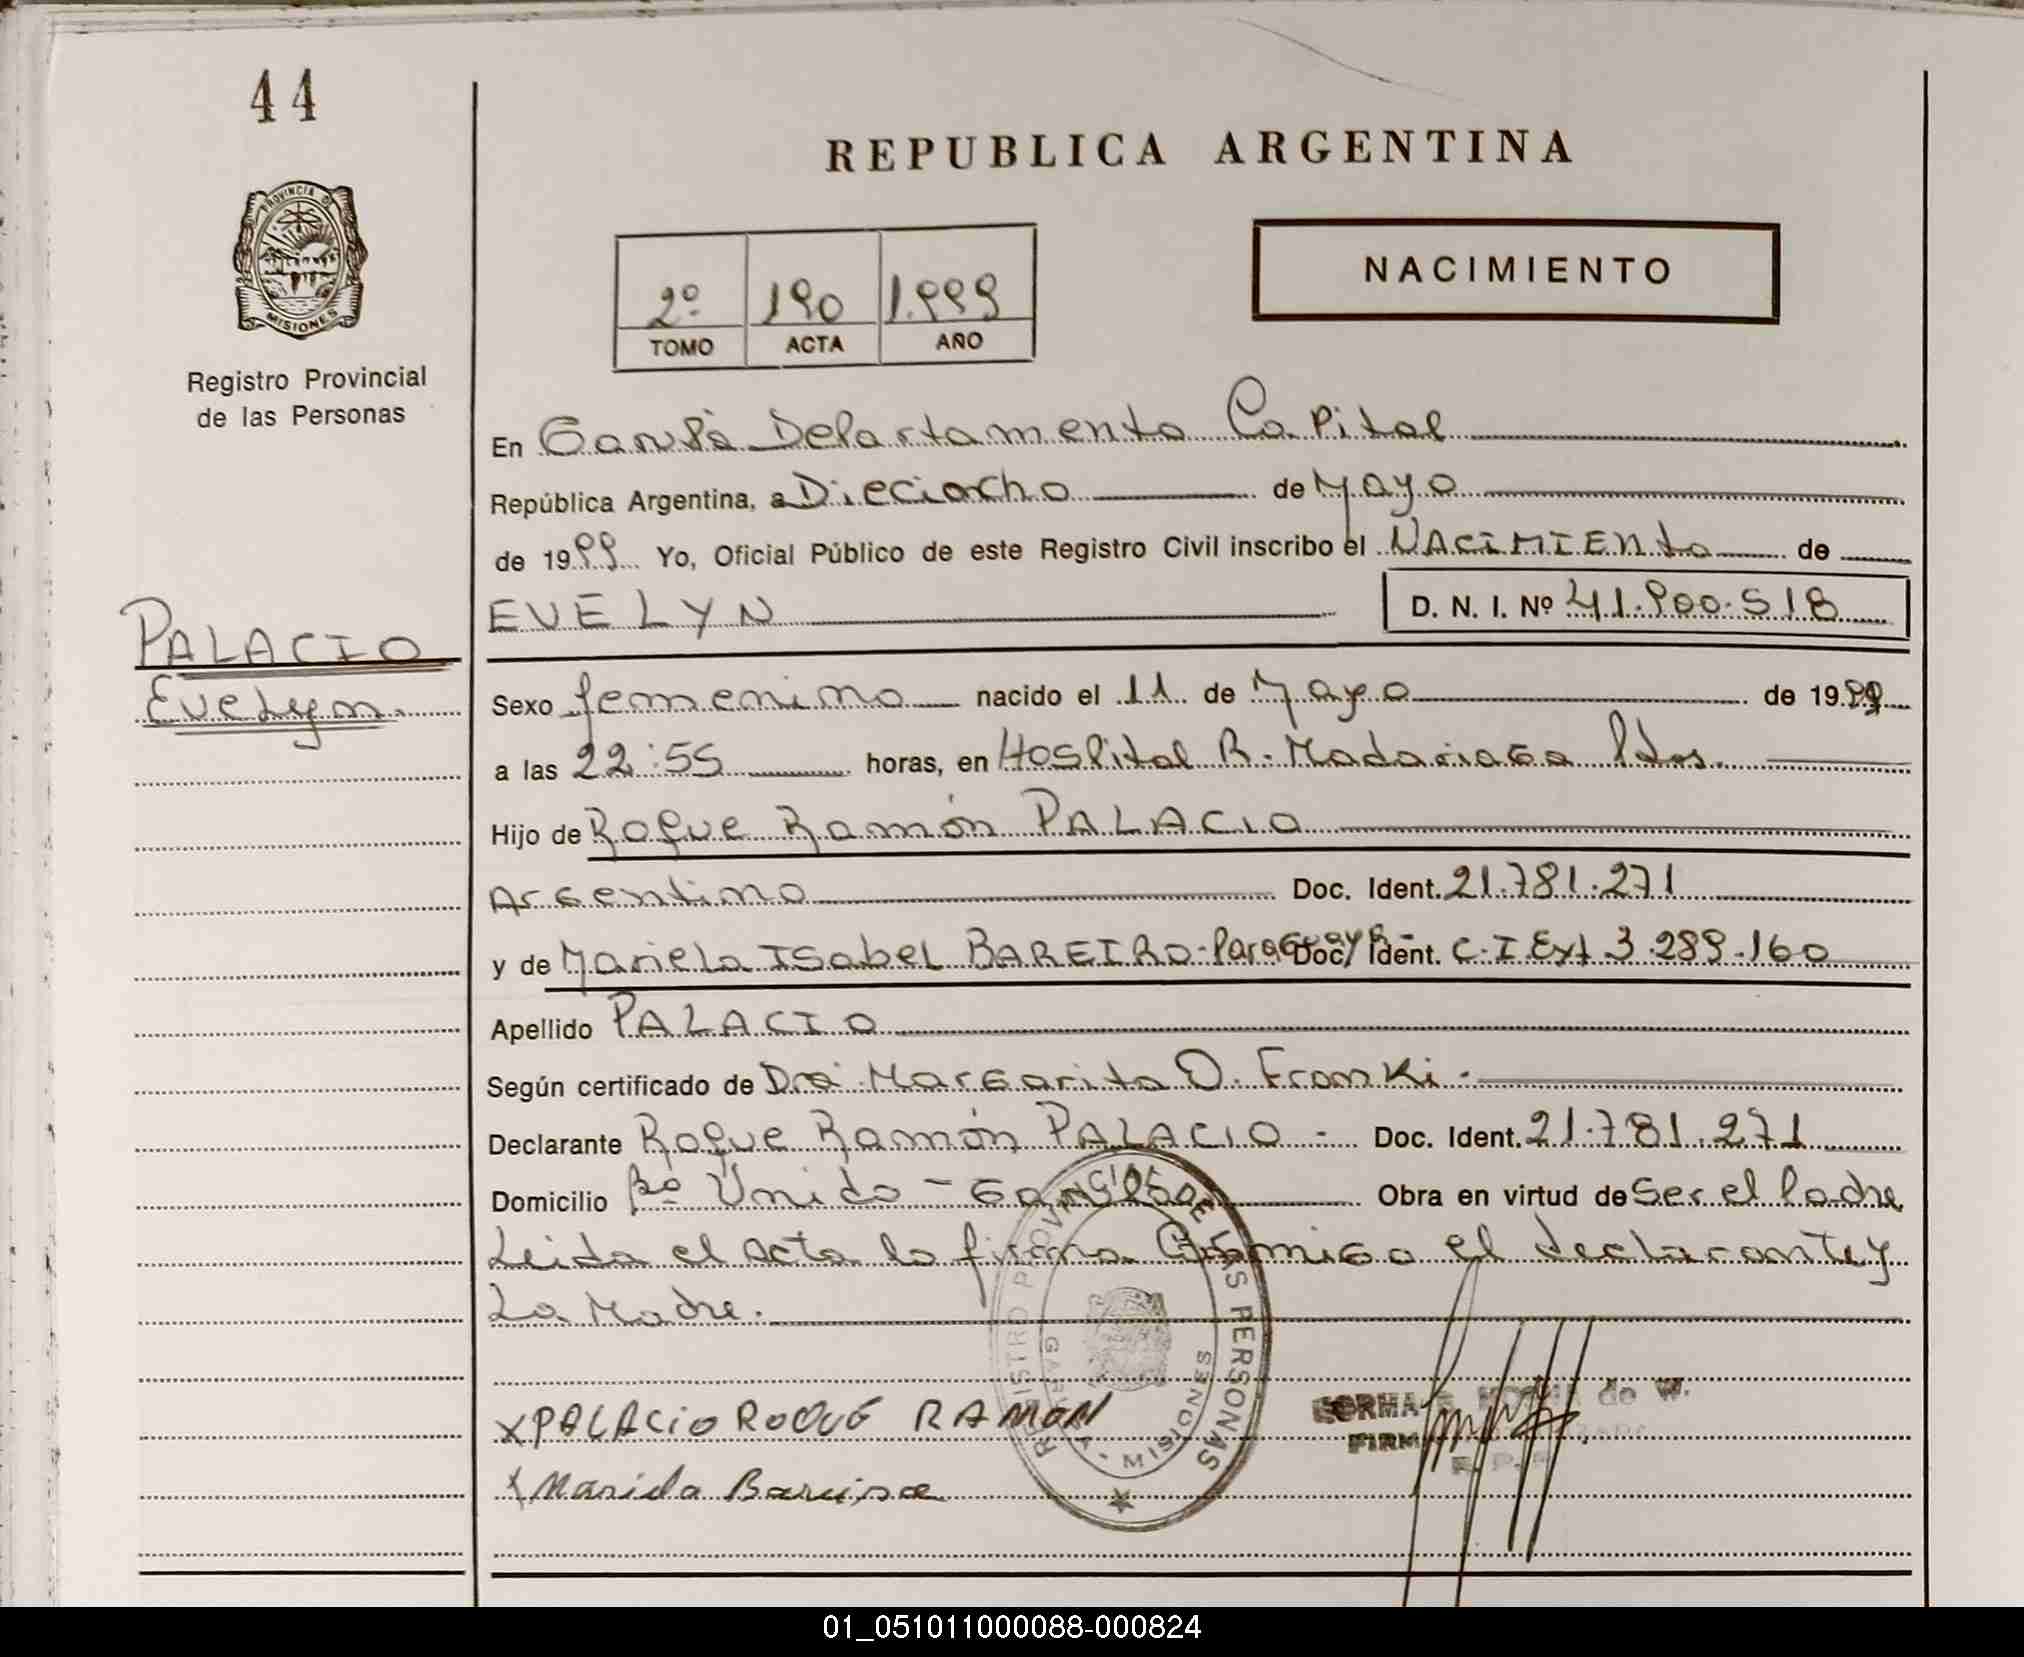 44
REPUBLICA ARGENTINA
PROVINCIA DE
MISIONES
NACIMIENTO
2º 190 1.999
TOMO ACTA AÑO
Registro Provincial
de las Personas
En Garupá Departamento Capital
República Argentina, a Dieciocho de Mayo
de 1999 Yo, Oficial Público de este Registro Civil inscribo el NACIMIENto de
EVELYN D. N. I. Nº 41.900.518
PALACIO
Evelyn.
Sexo femenino nacido el 11 de Mayo de 1999
a las 22:55 horas, en Hospital R. Madariaga Pdas.
Hijo de Roque Ramón PALACIO
Argentino Doc. Ident. 21.781.271
y de Mariela ISabel BAREIRO-Paraguaya- Doc. Ident. C.I.Ext 3.289.160
Apellido PALACIO
Según certificado de Dra. Margarita O. Fronki.
Declarante Roque Ramón PALACIO - Doc. Ident. 21.781.271
Domicilio Bº Unido - Garupá Obra en virtud de Ser el Padre
Leida el acta la firma Conmigo el declarante y
La Madre.
REGISTRO PROVINCIAL DE LAS PERSONAS
MISIONES
X PALACIO ROQUE RAMON
X Mariela Bareiro
FIRMA
01_051011000088-000824